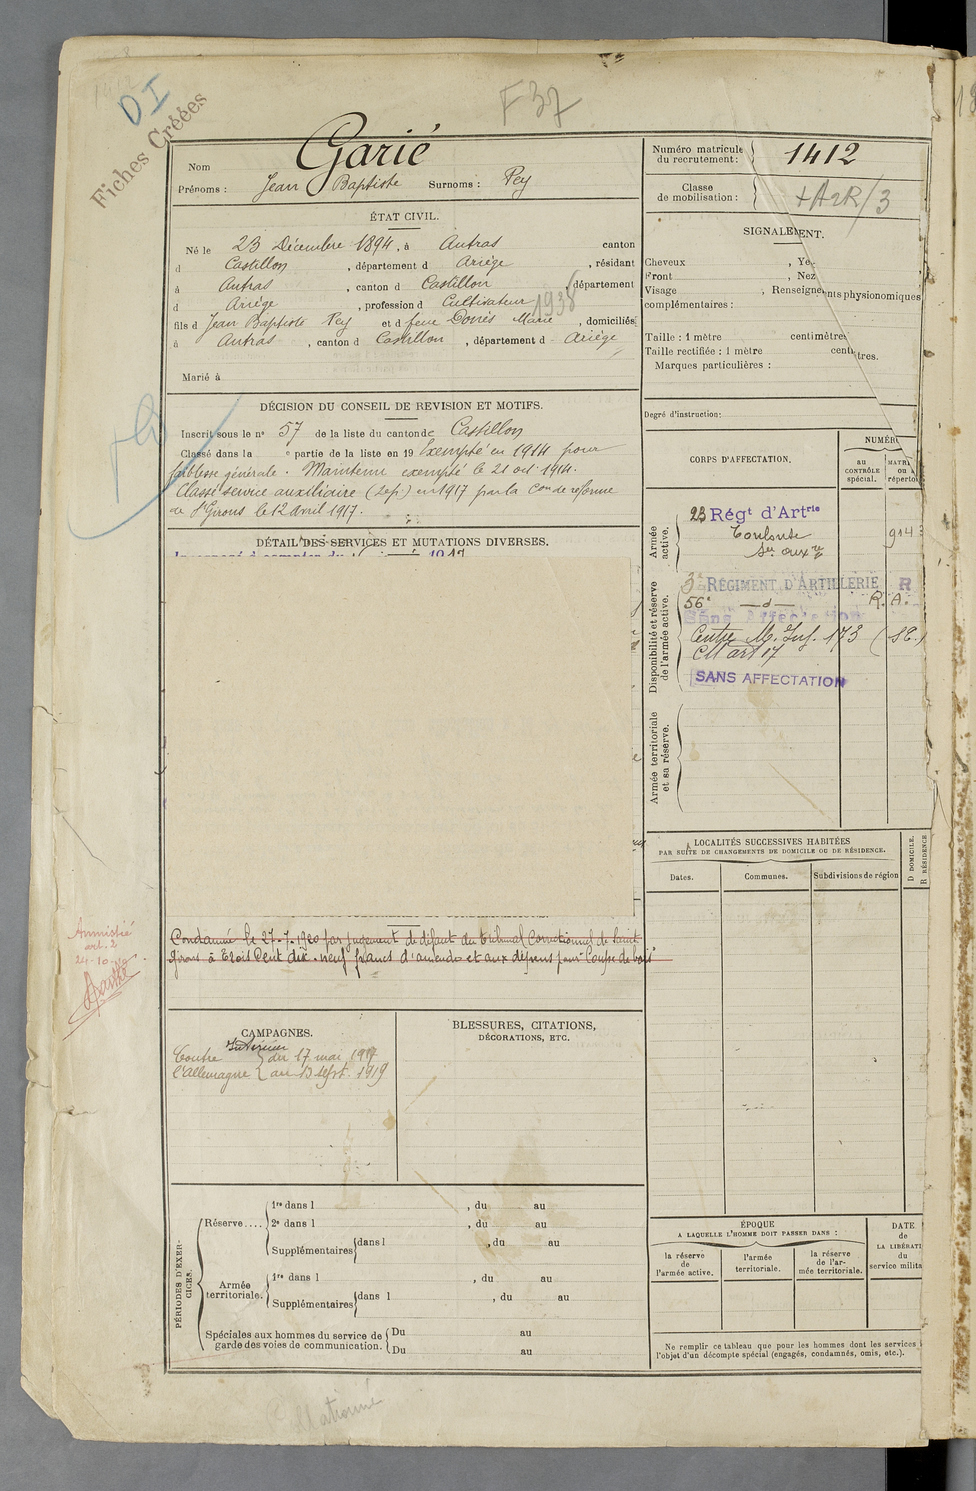 F37
DI
Fiches Créées
Nom Garié
Prénoms : Jean Baptiste Surnoms : Pey
Numéro matricule
du recrutement : 1412
Classe
de mobilisation :
ÉTAT CIVIL.
Né le 23 Décembre 1894, à Autras canton
d Castillon, département d Ariège, résidant
à Autras, canton d Castillon, département
d Ariège, profession d Cultivateur
1938
fils d Jean Baptiste Pey et d feue Marie, domiciliés
à Autras, canton d Castillon, département d Ariège
Marié à
SIGNALEMENT.
Cheveux , Ye
Front , Nez
Visage , Renseignements physionomiques
complémentaires :
Taille : 1 mètre centimètres
Taille rectifiée : 1 mètre centimètres.
Marques particulières :
Degré d'instruction :
DÉCISION DU CONSEIL DE REVISION ET MOTIFS.
Inscrit sous le n° 57 de la liste du canton de Castillon
Classé dans la e partie de la liste en 19 Exempté en 1914 pour
faiblesse générale. Maintenu exempté le 21 oct 1914.
Classé service auxiliaire (2e p.) en 1917 par la Con de réforme
de St Girons le 12 avril 1917.
DÉTAIL DES SERVICES ET MUTATIONS DIVERSES.
CORPS D'AFFECTATION.
NUMÉR
au
CONTRÔLE
spécial.
MATRI
ou a
réperto
Armée
active.
23 Régt d'Artrie
Toulouse
Ser auxre
914
Disponibilité et réserve
de l'armée active.
3e RÉGIMENT D'ARTILLERIE R
56e —d— R. A.
Sans Affectation
Centre M. Inf. 173
CM art 17
SANS AFFECTATION
Armée territoriale
et sa réserve.
LOCALITÉS SUCCESSIVES HABITÉES
PAR SUITE DE CHANGEMENTS DE DOMICILE OU DE RÉSIDENCE.
Dates.
Communes.
Subdivisions de région
D DOMICILE.
R RÉSIDENCE
Condamné le 27-7-1920 par jugement de défaut du tribunal Correctionnel de Saint
Girons à Trois Cent dix-neuf francs d'amende et aux dépens pour "Coupe de bois"
Amnistié
art. 2
24-10-19
CAMPAGNES.
Intérieur
Contre { du 17 mai 1917
l'Allemagne { au 13 Sept. 1919
BLESSURES, CITATIONS,
DÉCORATIONS, ETC.
PÉRIODES D'EXER-
CICES.
Réserve....
1re dans l , du au
2e dans l , du au
Supplémentaires dans l , du au
Armée
territoriale.
1re dans l , du au
Supplémentaires dans l , du au
Spéciales aux hommes du service de
garde des voies de communication.
Du au
Du au
ÉPOQUE
A LAQUELLE L'HOMME DOIT PASSER DANS :
la réserve
de
l'armée active.
l'armée
territoriale.
la réserve
de l'ar-
mée territoriale.
DATE
de
LA LIBÉRATI
du
service milita
Ne remplir ce tableau que pour les hommes dont les services
l'objet d'un décompte spécial (engagés, condamnés, omis, etc.).
Collationné